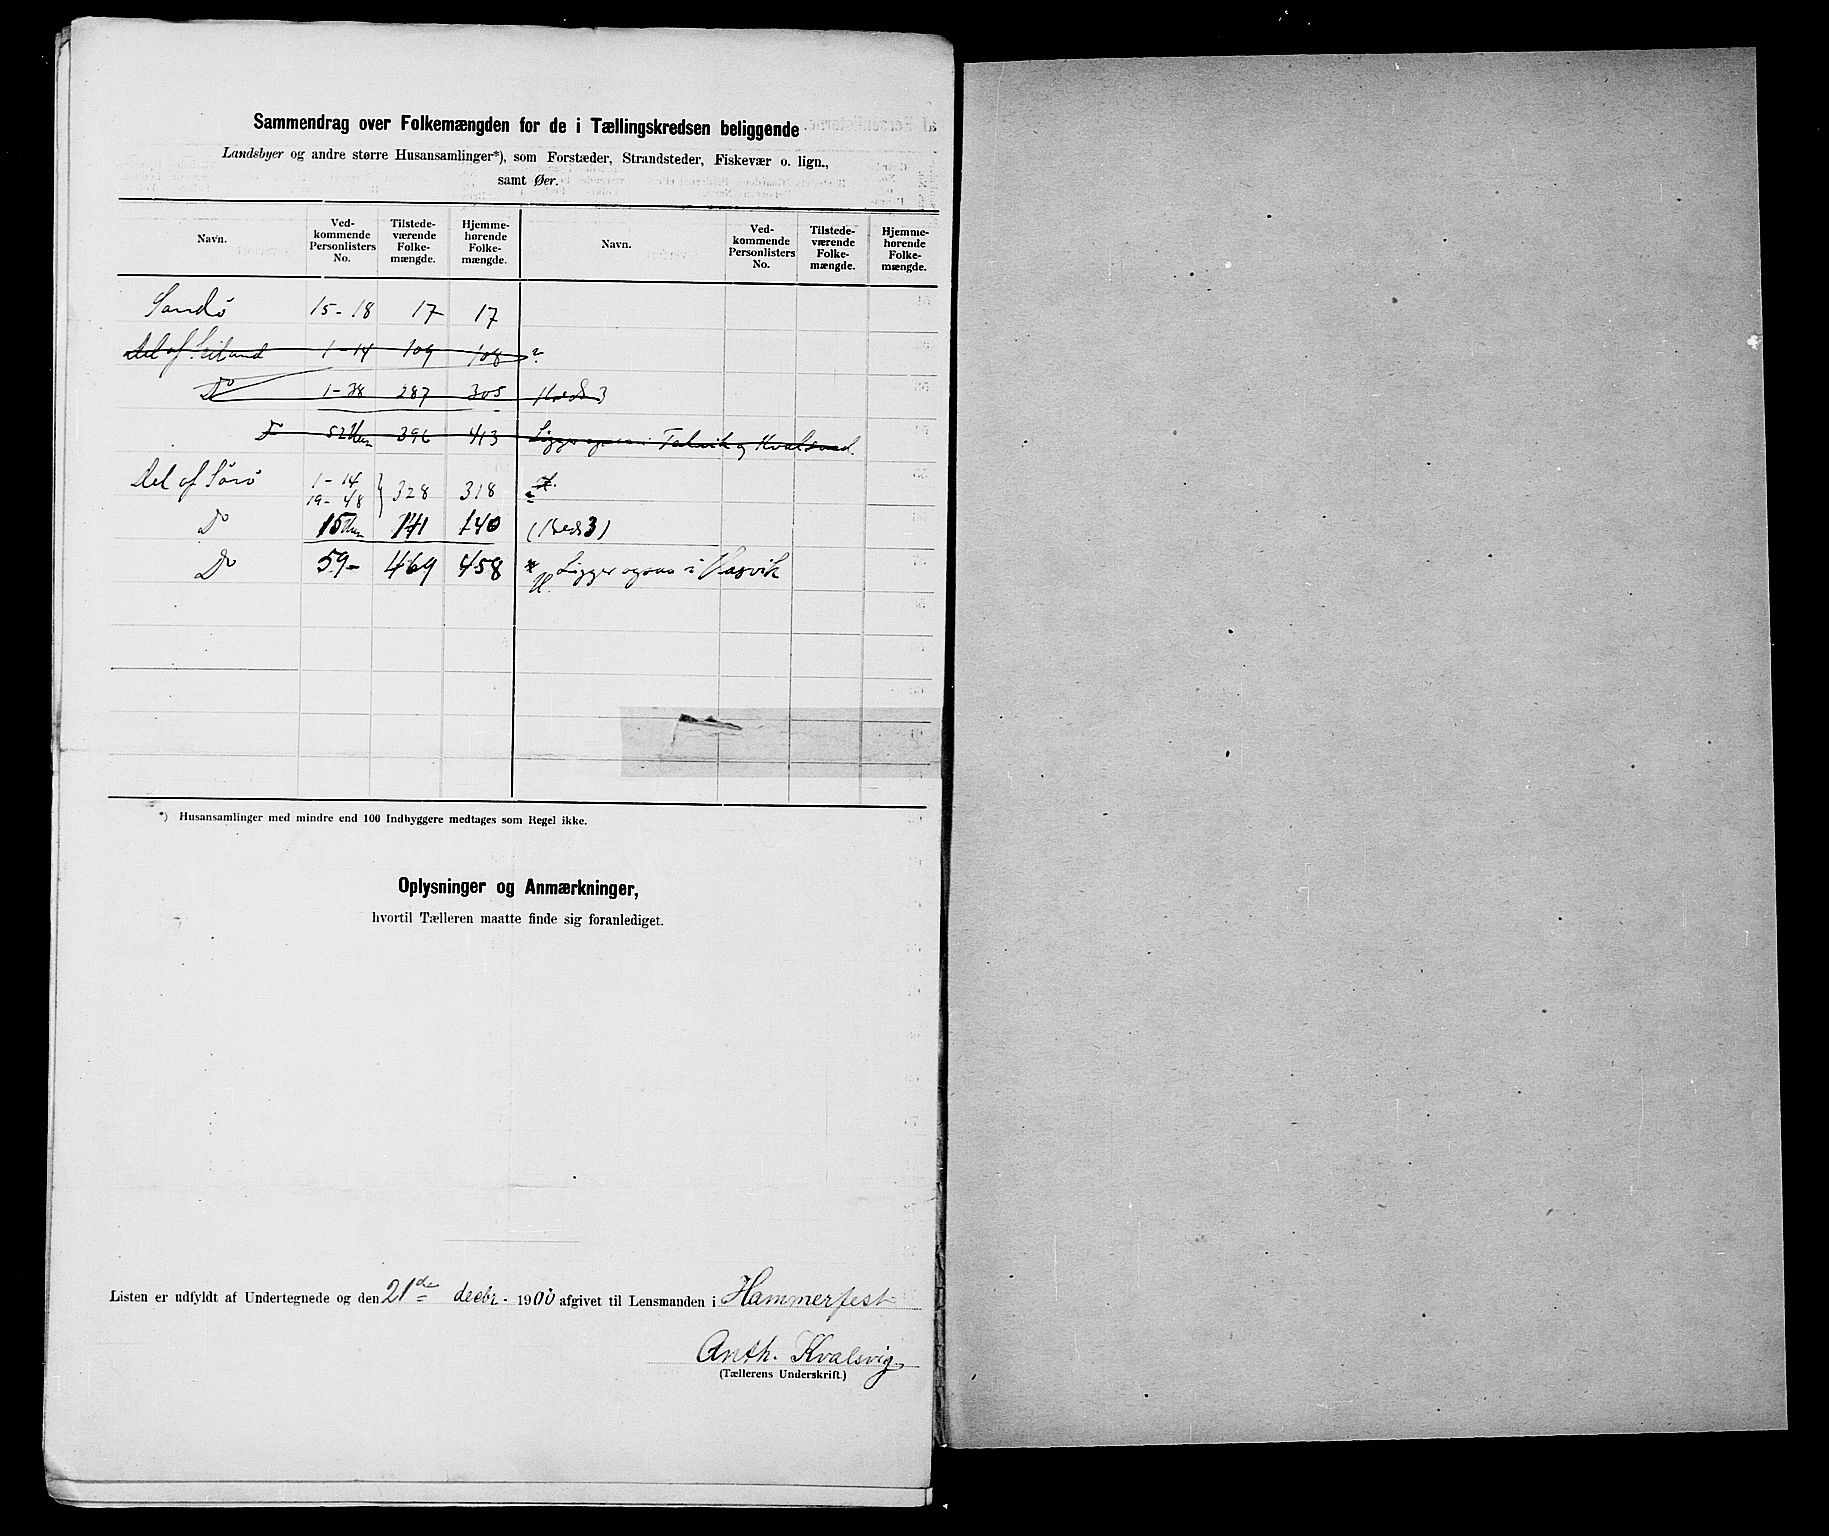 Sammendrag over Folkemængden for de i Tællingskredsen beliggende
Landsbyer og andre større Husansamlinger*), som Forstæder, Strandsteder, Fiskevær o. lign.,
samt Øer.
Navn. Ved-kommende Personlisters No. Tilstede-værende Folke-mængde. Hjemme-hørende Folke-mængde. Navn. Ved-kommende Personlisters No. Tilstede-værende Folke-mængde. Hjemme-hørende Folke-mængde.
Sandø 15-18 17 17
Del af Seiland 1-14 109 108
Do 1-38 287 305 Kreds 3
52 396 413 Ligger ogsaa i Talvik og Kvalsund.
Del af Sørø 1-14 19-48 } 328 318
Do 15 141 140 (Kreds 3)
Do 59- 469 458 * Ligger ogsaa i Hasvik
*) Husansamlinger med mindre end 100 Indbyggere medtages som Regel ikke.
Oplysninger og Anmærkninger,
hvortil Tælleren maatte finde sig foranlediget.
Listen er udfyldt af Undertegnede og den 21de decbr. 1900 afgivet til Lensmanden i Hammerfest
Anth. Kvalsvig
(Tællerens Underskrift.)